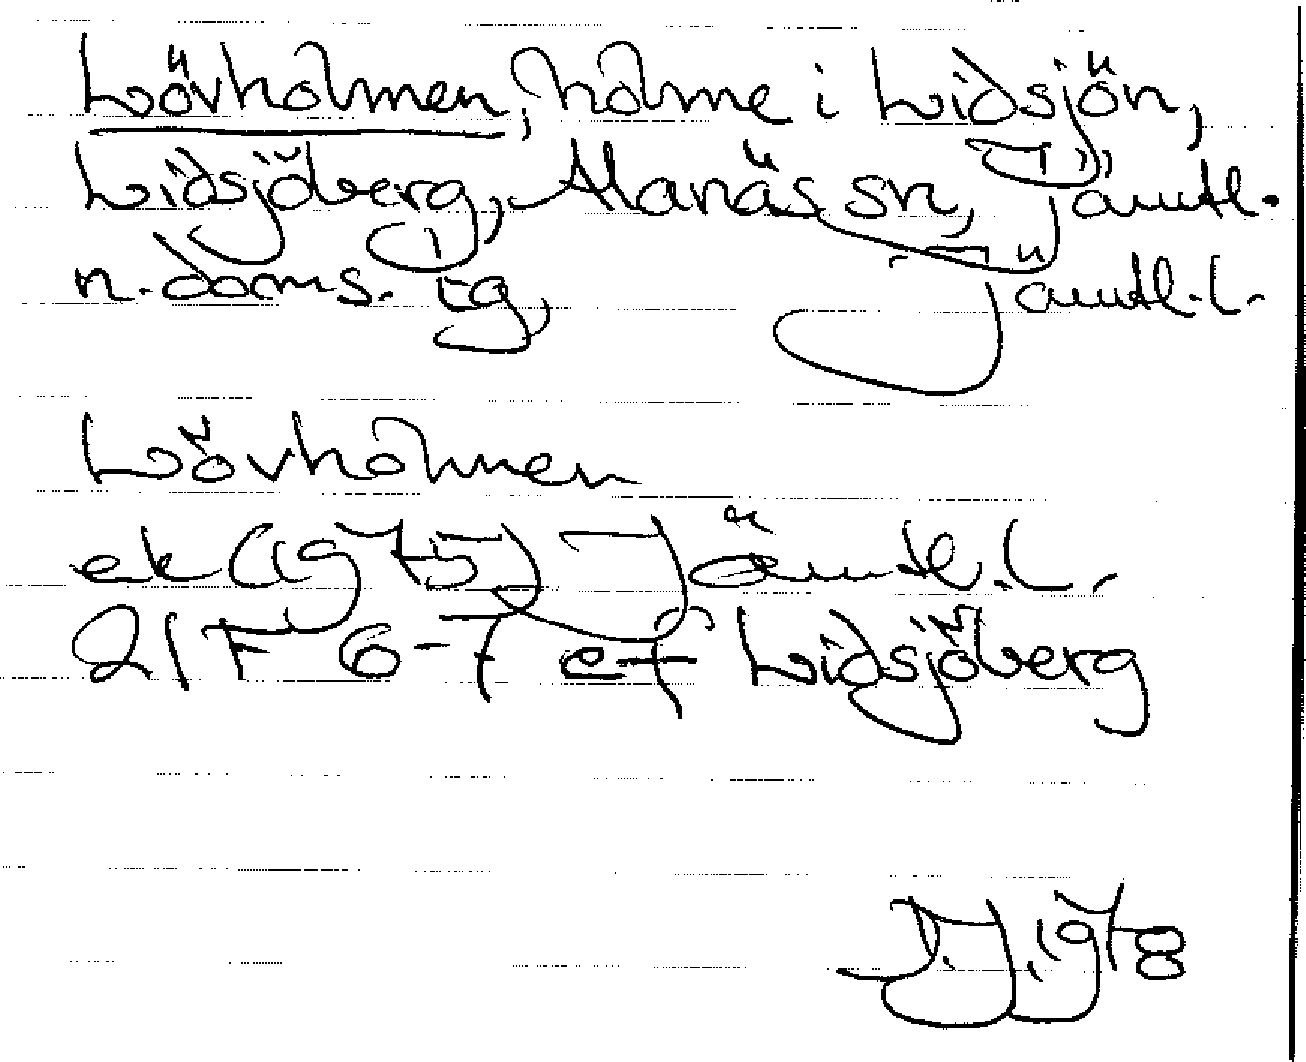 Lövholmen, holme i Lidsjön,
Lidsjöberg, Alanäs sn, Jämtl.
n. doms. tg, Jämtl. l.
Lövholmen
ek (1975) Jämtl. l.
21 F 6-7 e-f Lidsjöberg
1978